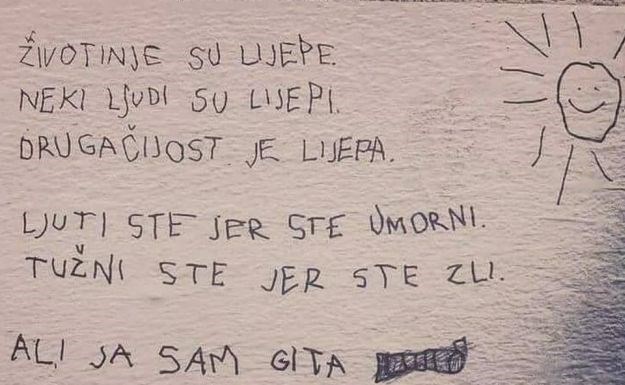 ŽIVOTINJE SU LIJEPE.
NEKI LJUDI SU LIJEPI.
DRUGAČIJOST JE LIJEPA.
LJUTI STE JER STE UMORNI.
TUŽNI STE JER STE ZLI.
ALI JA SAM GITA